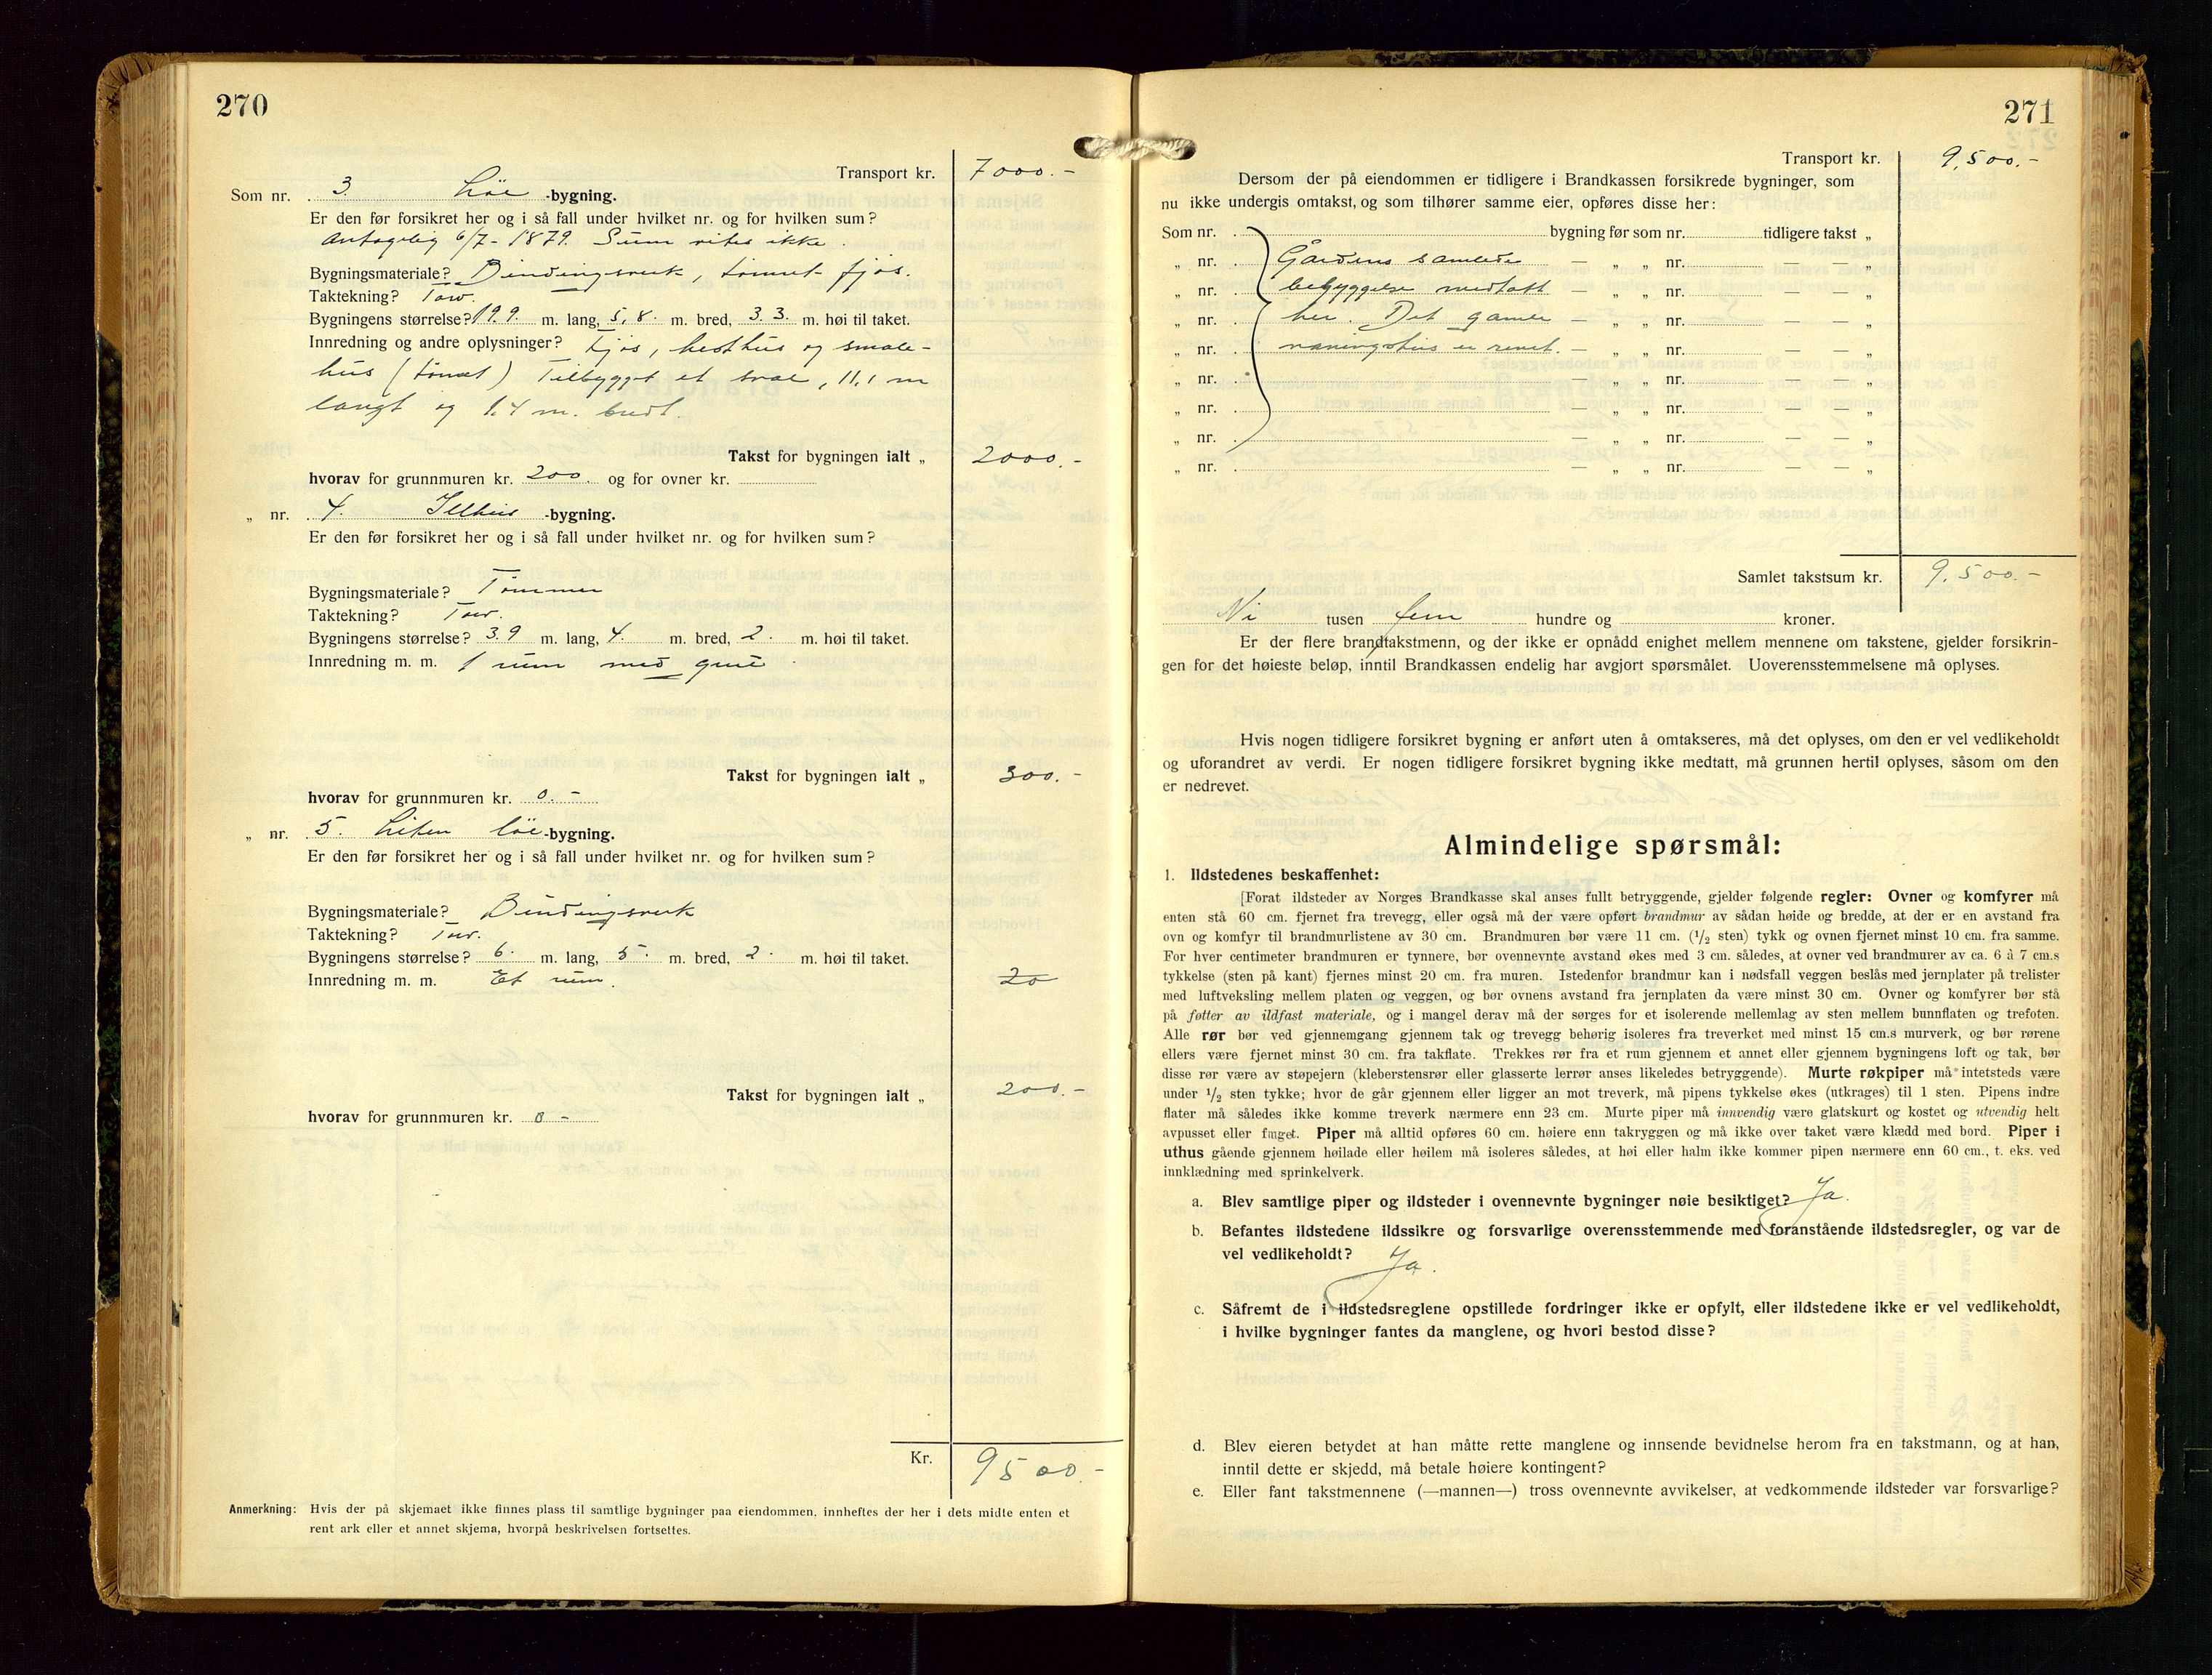 270
Transport kr. 7000.-
Som nr. 3. Löe -bygning.
Er den før forsikret her og i så fall under hvilket nr. og for hvilken sum?
Antagelig 6/7 - 1879. Sum vites ikke.
Bygningsmateriale? Bindingsverk, tømret fjøs.
Taktekning? Torv.
Bygningens størrelse? 19.9 m. lang, 5,8. m. bred, 3.3. m. høi til taket.
Innredning og andre oplysninger? Fjøs, hesthus og smale-
hus (tømret) Tilbygget et sval, 11,1 m
langt og 1.4 m. bredt.
Takst for bygningen ialt „ 2000.-
hvorav for grunnmuren kr. 200. og for ovner kr.
„ nr. 4. Ildhus -bygning.
Er den før forsikret her og i så fall under hvilket nr. og for hvilken sum?
Bygningsmateriale? Tømmer
Taktekning? Torv.
Bygningens størrelse? 3.9 m. lang, 4. m. bred, 2. m. høi til taket.
Innredning m. m. 1 rum med grue.
Takst for bygningen ialt „ 300.-
hvorav for grunnmuren kr. 0.-
„ nr. 5. Liten löe -bygning.
Er den før forsikret her og i så fall under hvilket nr. og for hvilken sum?
Bygningsmateriale? Bindingsverk
Taktekning? Torv.
Bygningens størrelse? 6. m. lang, 5. m. bred, 2. m. høi til taket.
Innredning m. m. Et rum. 20
Takst for bygningen ialt „ 200.-
hvorav for grunnmuren kr. 0 -
Kr. 9500.-
Anmerkning: Hvis der på skjemaet ikke finnes plass til samtlige bygninger paa eiendommen, innheftes der her i dets midte enten et
rent ark eller et annet skjema, hvorpå beskrivelsen fortsettes.
271
Transport kr. 9,500.-
Dersom der på eiendommen er tidligere i Brandkassen forsikrede bygninger, som
nu ikke undergis omtakst, og som tilhører samme eier, opføres disse her:
Som nr. bygning før som nr. tidligere takst „
„ nr. Gårdens samlede — „ „ nr. — — „
„ nr. bebyggelse medtatt — „ „ nr. — — „
„ nr. her. Det gamle — „ „ nr. — — „
„ nr. våningshus er revet. — „ „ nr. — — „
„ nr. — „ „ nr. — — „
„ nr. — „ „ nr. — — „
„ nr. — „ „ nr. — — „
„ nr. — „ „ nr. — — „
Samlet takstsum kr. 9,500.-
Ni tusen fem hundre og kroner.
Er der flere brandtakstmenn, og der ikke er opnådd enighet mellem mennene om takstene, gjelder forsikrin-
gen for det høieste beløp, inntil Brandkassen endelig har avgjort spørsmålet. Uoverensstemmelsene må oplyses.
Hvis nogen tidligere forsikret bygning er anført uten å omtakseres, må det oplyses, om den er vel vedlikeholdt
og uforandret av verdi. Er nogen tidligere forsikret bygning ikke medtatt, må grunnen hertil oplyses, såsom om den
er nedrevet.
Almindelige spørsmål:
1. Ildstedenes beskaffenhet:
[Forat ildsteder av Norges Brandkasse skal anses fullt betryggende, gjelder følgende regler: Ovner og komfyrer må
enten stå 60 cm. fjernet fra trevegg, eller også må der være opført brandmur av sådan høide og bredde, at der er en avstand fra
ovn og komfyr til brandmurlistene av 30 cm. Brandmuren bør være 11 cm. (1/2 sten) tykk og ovnen fjernet minst 10 cm. fra samme.
For hver centimeter brandmuren er tynnere, bør ovennevnte avstand økes med 3 cm. således, at ovner ved brandmurer av ca. 6 à 7 cm.s
tykkelse (sten på kant) fjernes minst 20 cm. fra muren. Istedenfor brandmur kan i nødsfall veggen beslås med jernplater på trelister
med luftveksling mellem platen og veggen, og bør ovnens avstand fra jernplaten da være minst 30 cm. Ovner og komfyrer bør stå
på føtter av ildfast materiale, og i mangel derav må der sørges for et isolerende mellemlag av sten mellem bunnflaten og trefoten.
Alle rør bør ved gjennemgang gjennem tak og trevegg behørig isoleres fra treverket med minst 15 cm.s murverk, og bør rørene
ellers være fjernet minst 30 cm. fra takflate. Trekkes rør fra et rum gjennem et annet eller gjennem bygningens loft og tak, bør
disse rør være av støpejern (kleberstensrør eller glasserte lerrør anses likeledes betryggende). Murte røkpiper må intetsteds være
under 1/2 sten tykke; hvor de går gjennem eller ligger an mot treverk, må pipens tykkelse økes (utkrages) til 1 sten. Pipens indre
flater må således ikke komme treverk nærmere enn 23 cm. Murte piper må innvendig være glatskurt og kostet og utvendig helt
avpusset eller fuget. Piper må alltid opføres 60 cm. høiere enn takryggen og må ikke over taket være klædd med bord. Piper i
uthus gående gjennem høilade eller høilem må isoleres således, at høi eller halm ikke kommer pipen nærmere enn 60 cm., t. eks. ved
innklædning med sprinkelverk.
a. Blev samtlige piper og ildsteder i ovennevnte bygninger nøie besiktiget? Ja.
b. Befantes ildstedene ildssikre og forsvarlige overensstemmende med foranstående ildstedsregler, og var de
vel vedlikeholdt? Ja.
c. Såfremt de i ildstedsreglene opstillede fordringer ikke er opfylt, eller ildstedene ikke er vel vedlikeholdt,
i hvilke bygninger fantes da manglene, og hvori bestod disse?
d. Blev eieren betydet at han måtte rette manglene og innsende bevidnelse herom fra en takstmann, og at han,
inntil dette er skjedd, må betale høiere kontingent?
e. Eller fant takstmennene (—mannen—) tross ovennevnte avvikelser, at vedkommende ildsteder var forsvarlige?